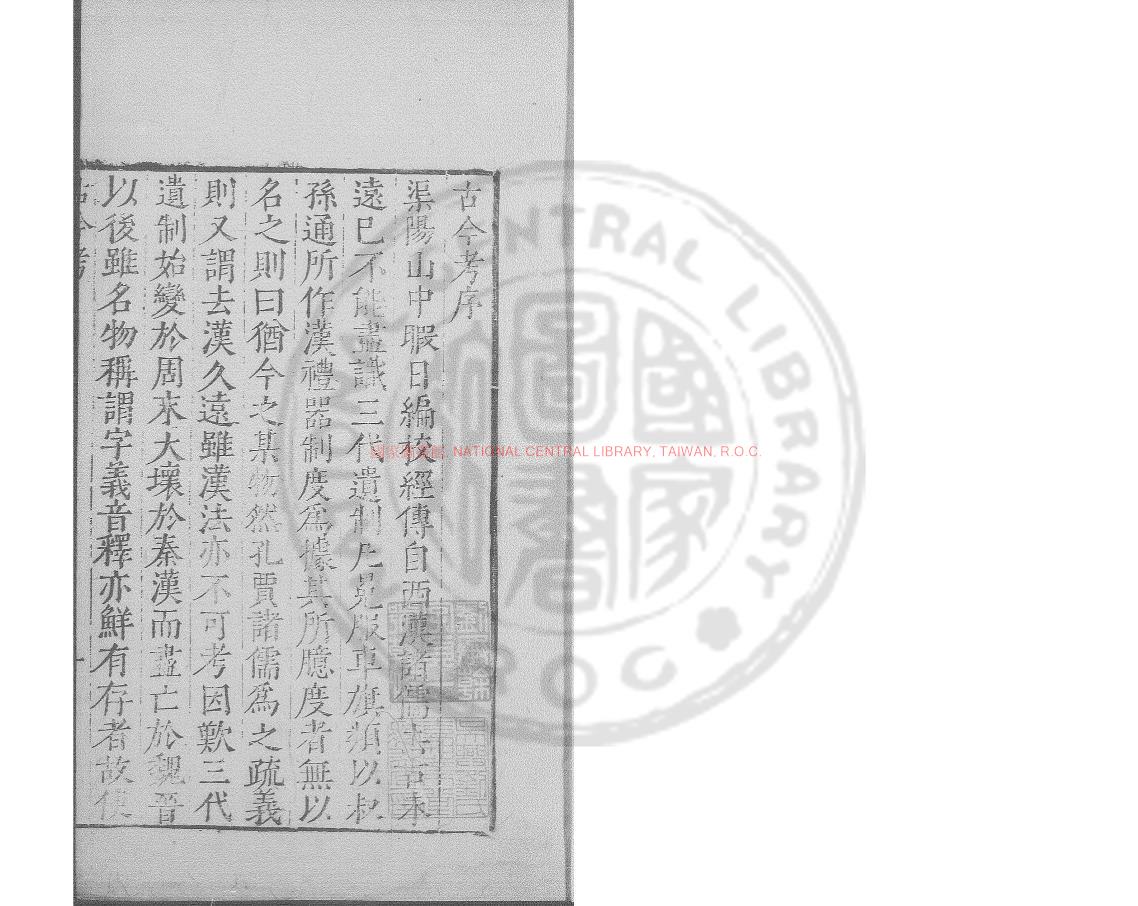 古今考序
渠陽山中暇日編校經傳自西漢諸儒去古未
遠已不能盡識三代遺制凡冕服車旗類以叔
孫通所作漢禮器制度爲據其所臆度者無以
名之則曰猶今之某物然孔賈諸儒爲之疏義
則又謂去漢久遠雖漢法亦不可考因歎三代
遺制始變於周末大壞於秦漢而盡亡於魏晉
以後雖名物稱謂字義音釋亦鮮有存者故使
古今考
一
國家圖書館, NATIONAL CENTRAL LIBRARY, TAIWAN, R.O.C.
國家圖書
NATIONAL CENTRAL LIBRARY
R.O.C.